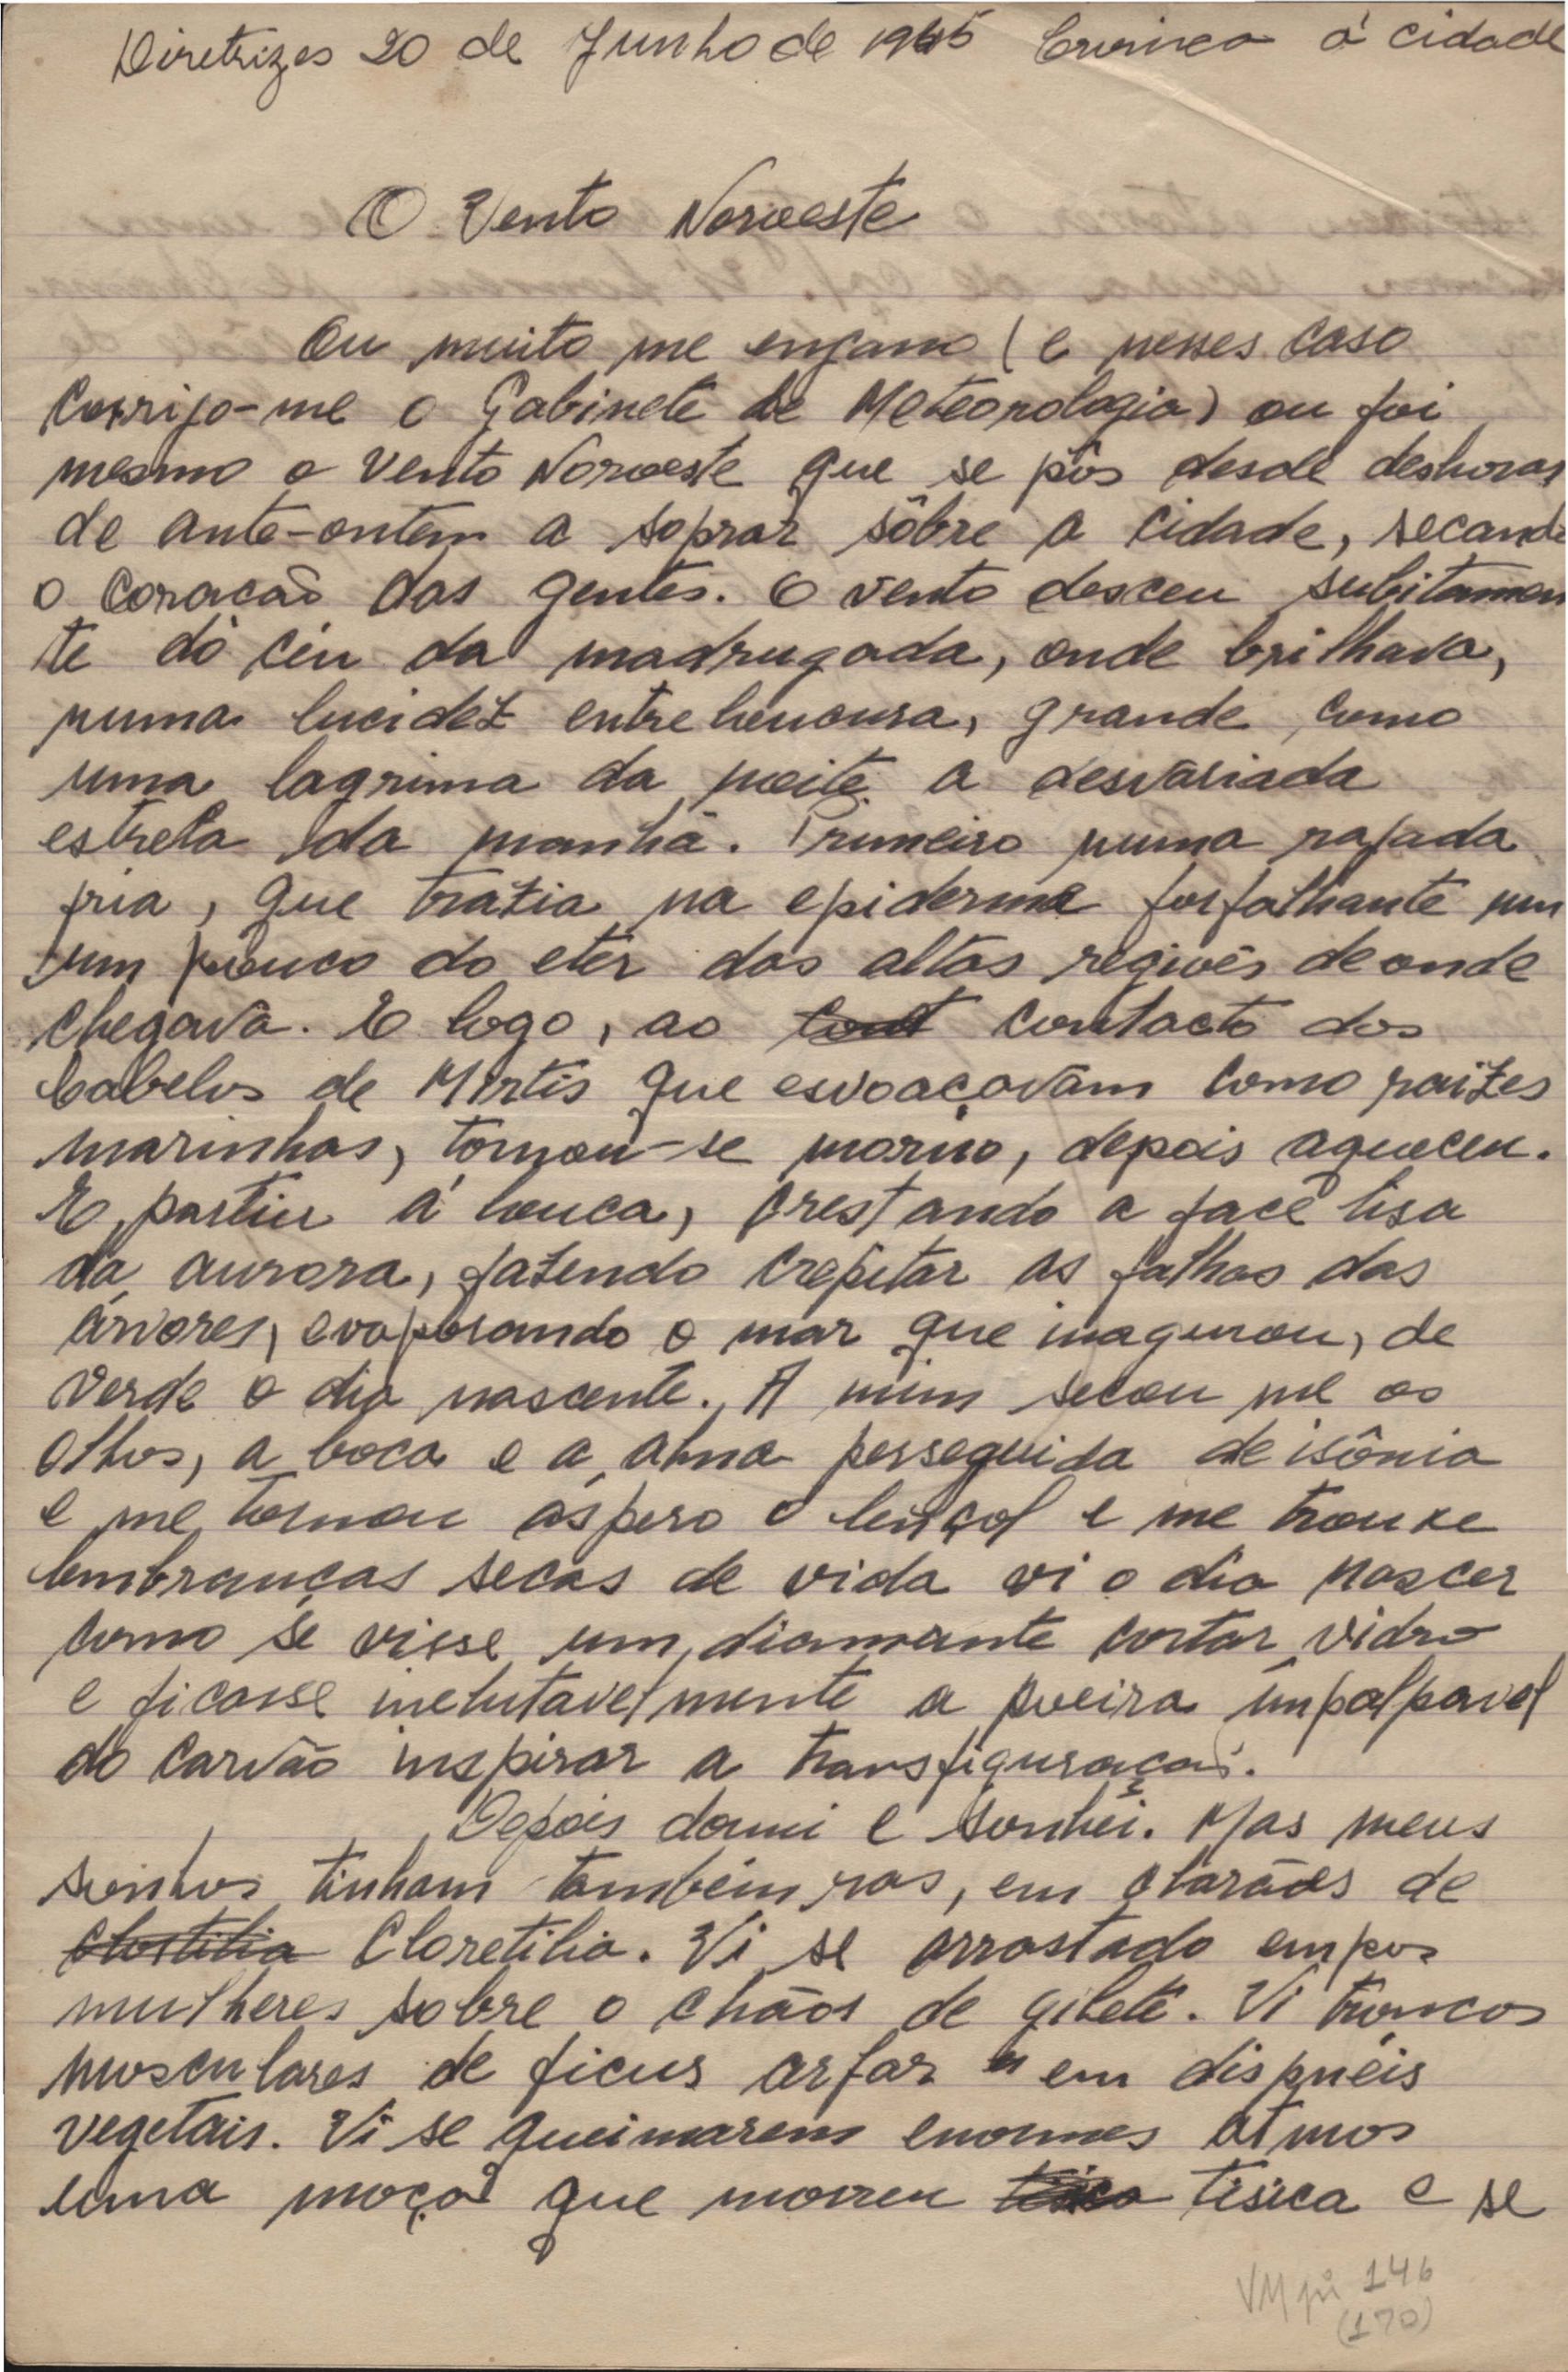 Diretrizes 20 de Junho de 1945 Cronica á cidade
O Vento Noroeste
Ou muito me engano (e nesses caso
Corrijo-me o Gabinete de Meteorologia) ou foi
mesmo o Vento Noroeste que se pôs desde deshoras
de ante-ontem a soprar sôbre a cidade, secando
o coração das gentes. O vento desceu subitamen
te do céu da madrugada, onde brilhava,
numa lucidez entrehoucura, grande como
uma lagrima da noite a desvariada
estrela da manhã. Primeiro numa rajada
fria, que trazia na epiderme farfalhante um
um pouco do eter das altas regioẽs de onde
chegava. E logo, ao contacto dos
Cabelos de Mirtis que esvoaçavam como raizes
marinhas, tornou-se morno, depois aqueceu.
E partiu á louca, crestando a face lisa
da aurora, fazendo crepitar as falhas das
árvores, evaporando o mar que inagurou, de
Verde o dia nascente. A mim secou me os
Olhos, a boca e a alma perseguida de isônia
e me tornou áspero o lençol e me trouxe
lembranças secas de vida vi o dia nascer
como se visse um diamante cortar vidro
e ficasse inelutavelmente a poeira impalpavel
do carvão inspirar a transfiguração.
Depois dormi e sonhei. Mas meus
sonhos tinham também ras, em clarões de
Cloretilia. Vi se arrastado empos
mulheres sobre o chãos de gilete. Vi troncos
musculares de ficus arfar em dispnéis
vegetais. Vi se queimarem enormes atmos
uma moça que morreu tísica e se
VMpi 146
(170)